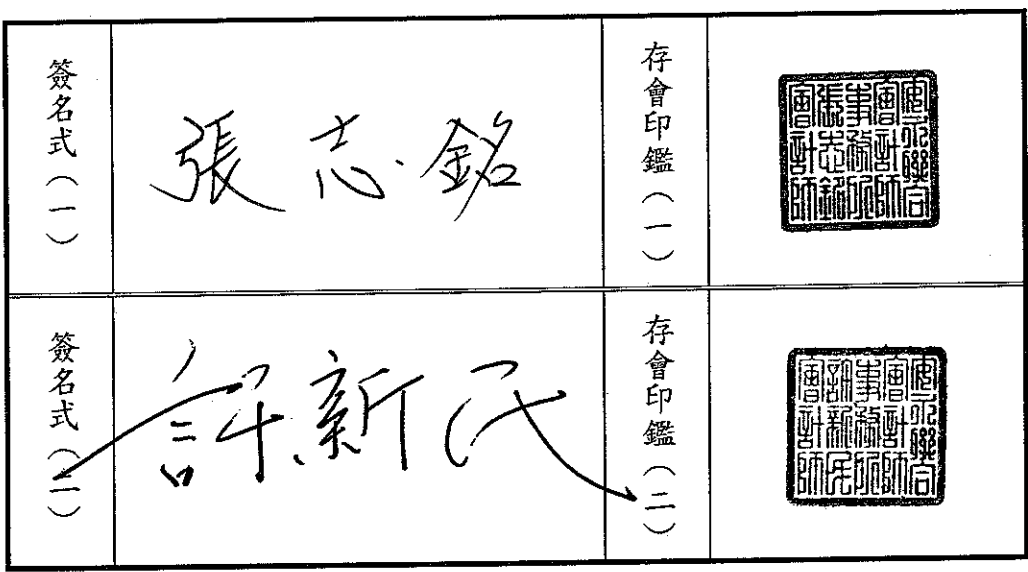 簽名式（一）
張志銘
存會印鑑（一）
安永聯合
會計師
事務所
張志銘
會計師
簽名式（二）
許新民
存會印鑑（二）
安永聯合
會計師
事務所
許新民
會計師